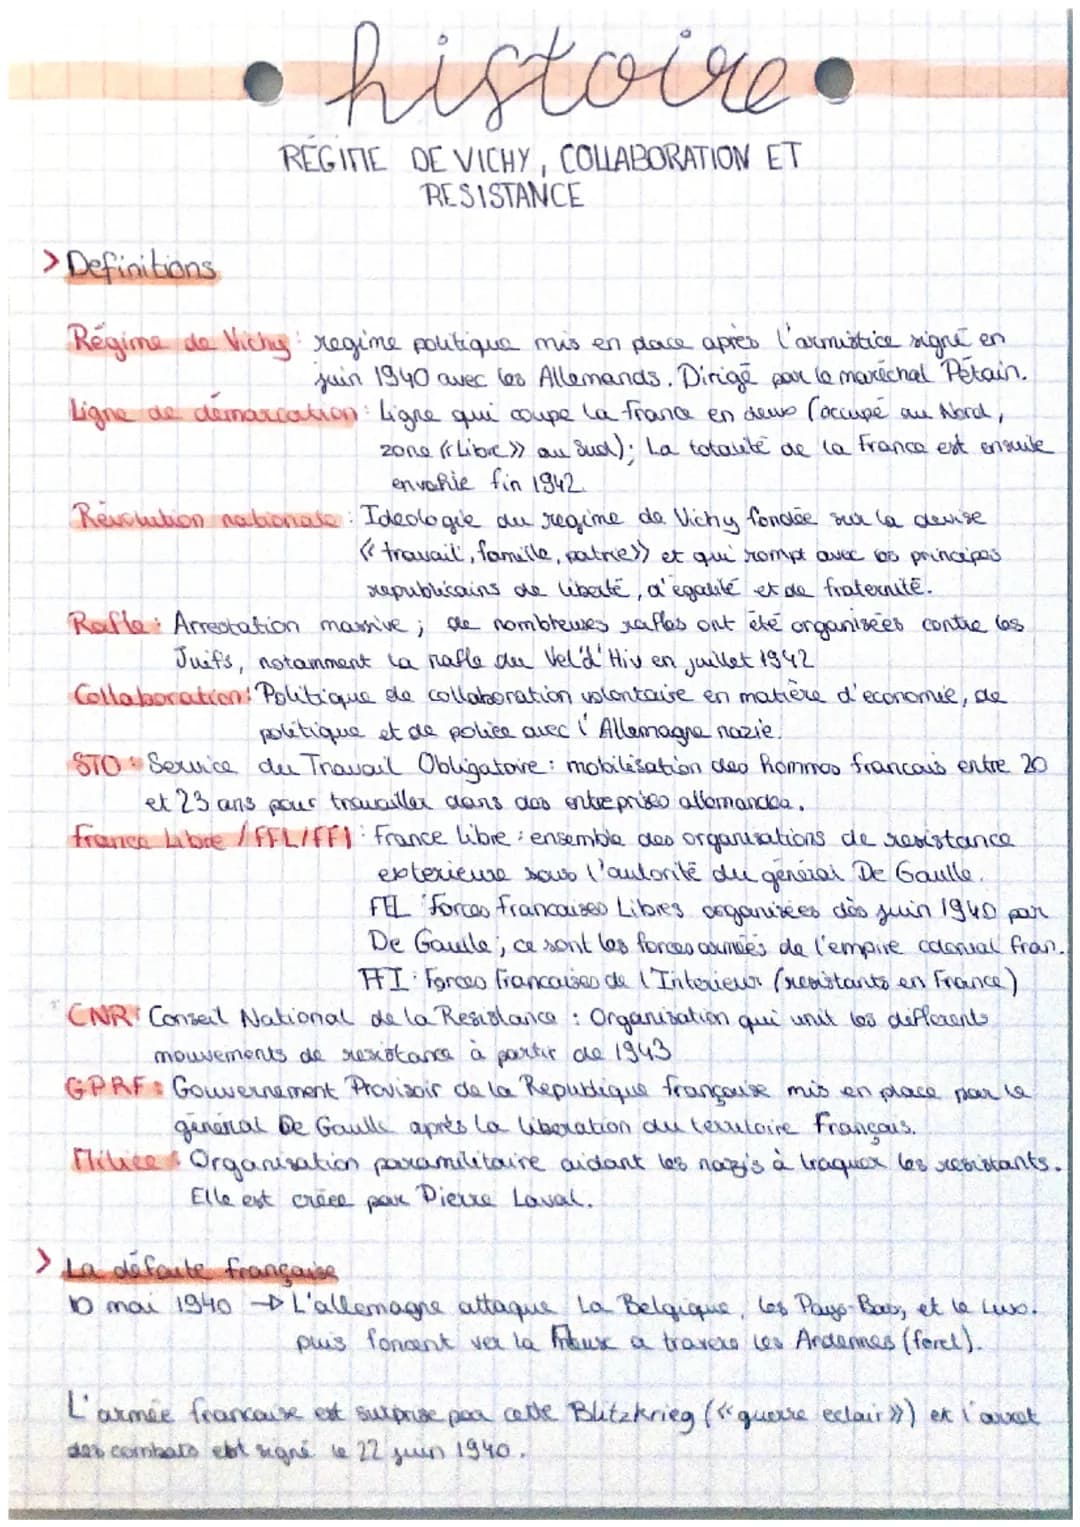 histoire
RÉGIME DE VICHY, COLLABORATION ET
RESISTANCE
> Definitions
Régime de Vichy : regime politique mis en place après l'armistice signé en
juin 1940 avec les Allemands. Dirigé par le maréchal Pétain.
Ligne de démarcation : Ligne qui coupe la France en deux (occupé au Nord,
zone «Libre» au Sud) ; La totalité de la France est ensuite
envahie fin 1942.
Révolution nationale : Ideologie du regime de Vichy fondée sur la devise
«travail, famille, patrie» et qui rompt avec les principes
republicains de liberté, d'égalité et de fraternité.
Rafle : Arrestation massive ; de nombreuses rafles ont été organisées contre les
Juifs, notamment la rafle du Vel'd'Hiv en juillet 1942
Collaboration : Politique de collaboration volontaire en matière d'economie, de
politique et de police avec l'Allemagne nazie.
STO : Service du Travail Obligatoire : mobilisation des hommes francais entre 20
et 23 ans pour travailler dans des entreprises allemandes.
France Libre / FFL / FFI : France Libre : ensemble des organisations de resistance
exterieure sous l'autorité du général De Gaulle.
FFL Forces Francaises Libres organisées dès juin 1940 par
De Gaulle ; ce sont les forces armées de l'empire colonial fran.
FFI : Forces Francaises de l'Interieur (resistants en France)
CNR : Conseil National de la Resistance : Organisation qui unit les differents
mouvements de resistance à partir de 1943
GPRF : Gouvernement Provisoir de la Republique française mis en place par le
général De Gaulle après la liberation du territoire Français.
Milice : Organisation paramilitaire aidant les nazis à traquer les resistants.
Elle est créée par Pierre Laval.
> La défaite française
10 mai 1940 → L'allemagne attaque La Belgique, les Pays-Bas, et le Lux.
puis foncent ver la Meuse a travers les Ardennes (foret).
L'armée francaise est surprise par cette Blitzkrieg («guerre eclair») et l'arret
des combats est signé le 22 juin 1940.